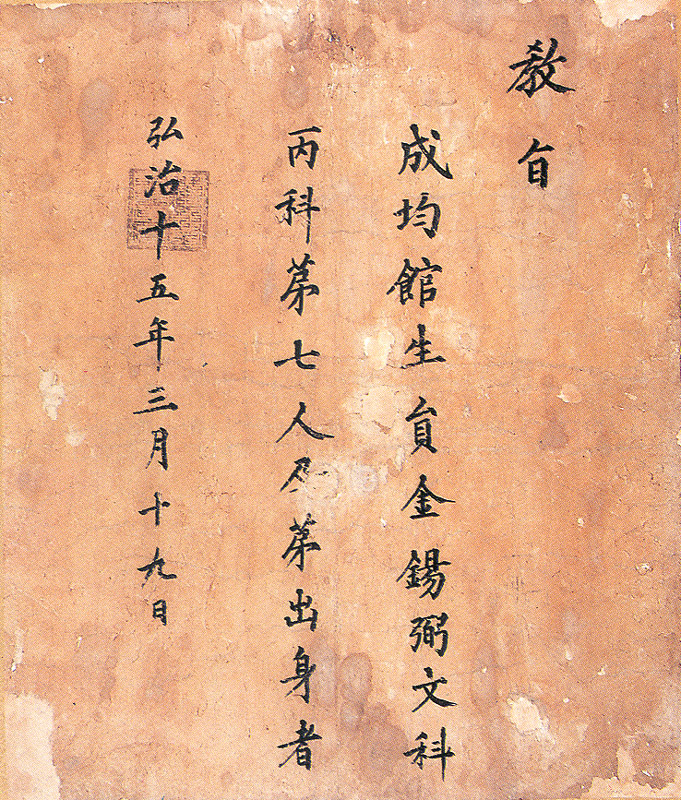 教旨
成均館生貟金錫弼文科
丙科苐七人及苐出身者
弘治十五年三月十九日